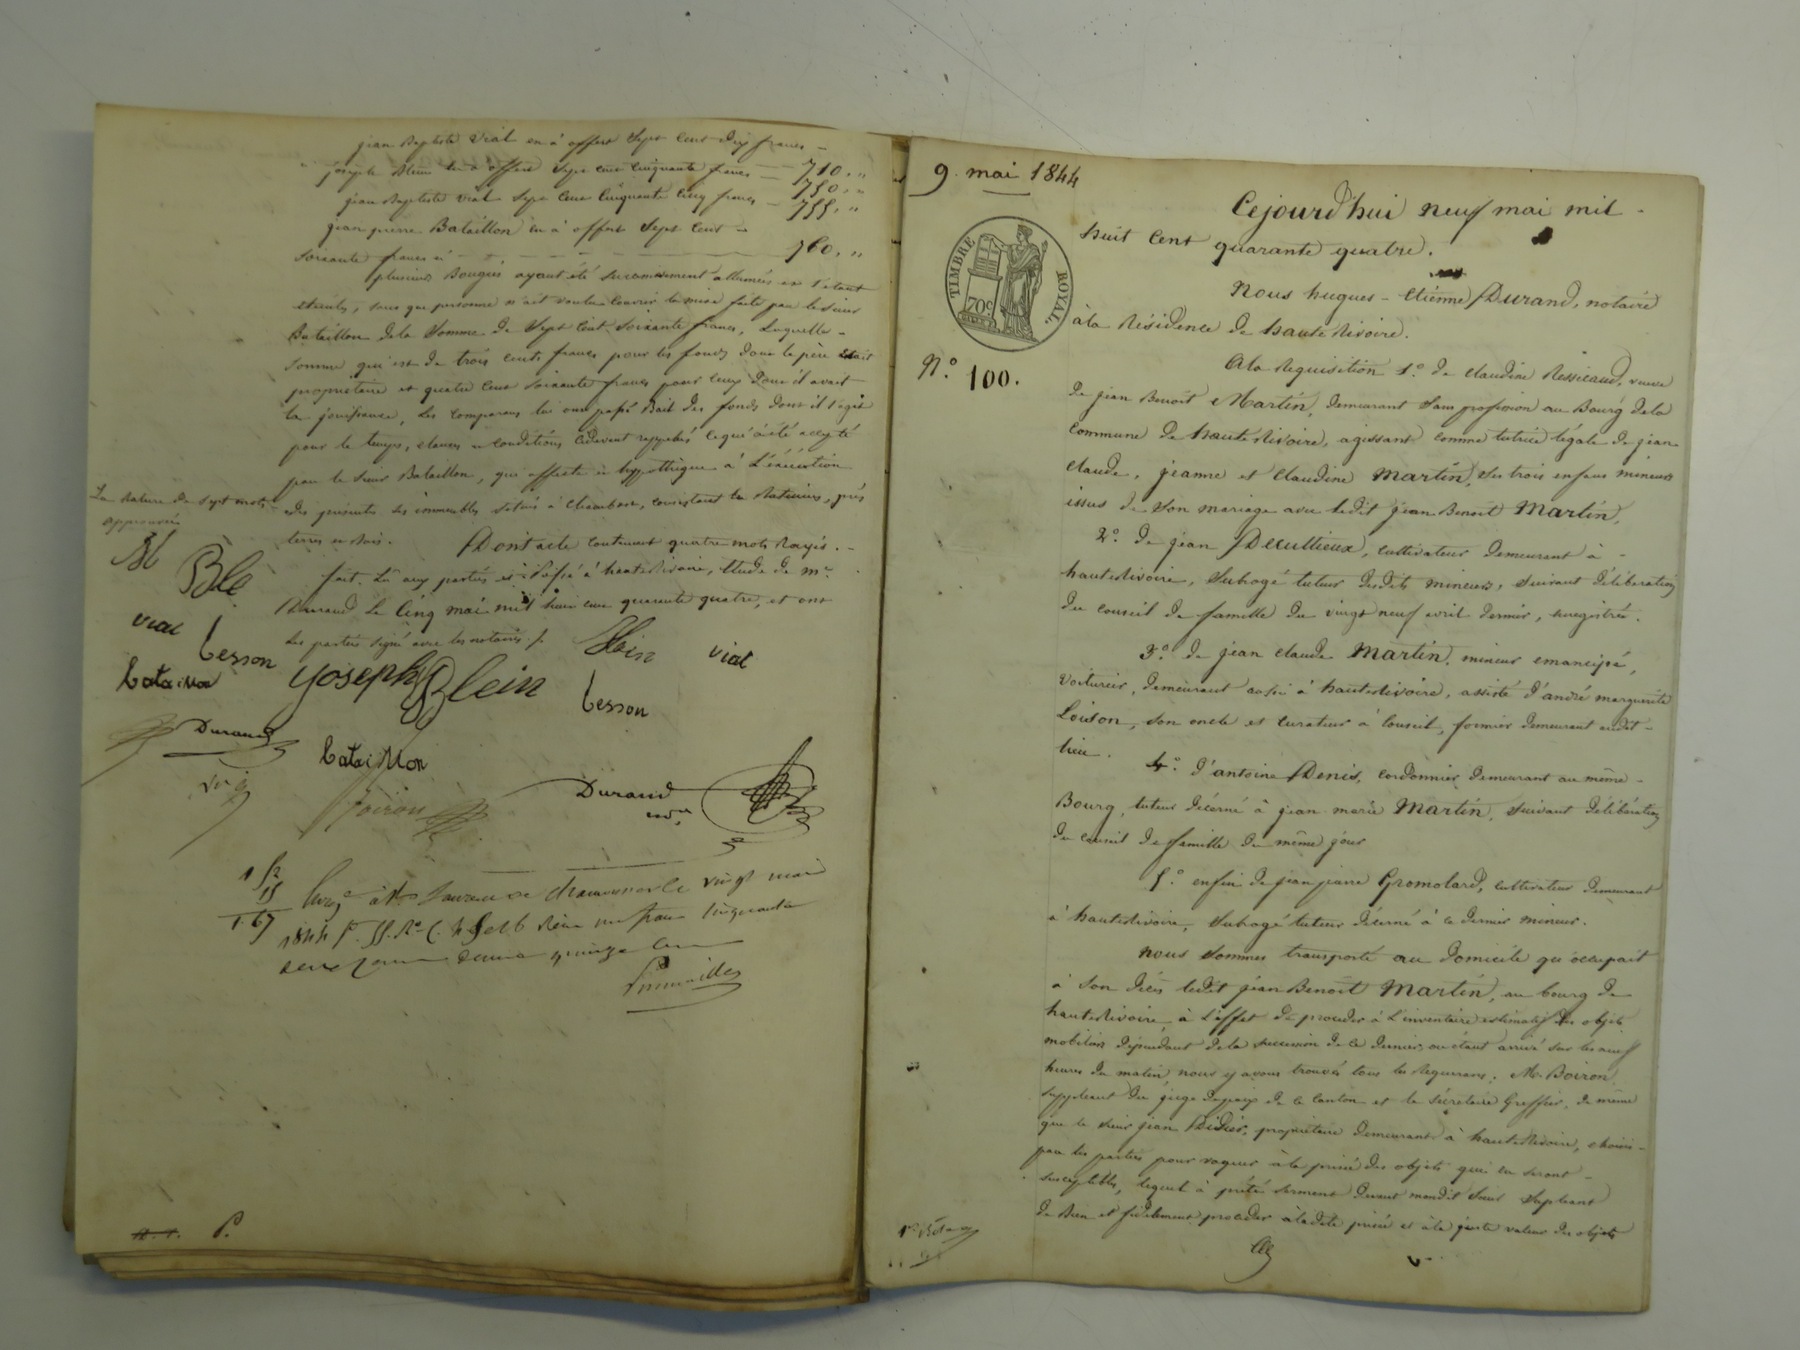 jean Baptiste Vial en a offert Sept Cent Dix francs - 710. "
joseph Blein en a offert Sept cent Cinquante francs - 750. "
jean Baptiste Vial Sept Cent Cinquante Cinq francs - 755. "
jean pierre Bataillon en a offert Sept Cent -
Soixante francs ci - 760. "
plusieurs Bougies ayant été successivement allumées et s'étant
éteintes, sans que personne n'ait voulu couvrir la mise faite par le sieur
Bataillon de la Somme de Sept Cent Soixante francs, Laquelle -
Somme qui est de trois cents francs pour les fonds dont le père était
propriétaire et quatre cent soixante francs pour ceux dont il avait
la jouissance, les comparans lui ont passé Bail des fonds dont il s'agit
pour le temps, clauses et conditions cidevant rappelés ce qui a été accepté
par le Sieur Bataillon, qui affecte et hypothèque à L'exécution
des présentes ses immeubles situés à Chambost, consistant en Batimens, prés
terres et bois. Dont acte contenant quatre mots Rayés. -
La Rature de sept mots
approuvée
fait, Lu aux parties et Passé à hauterivoire, Etude de me
Durand Le Cinq mai mil huit cent quarante quatre, et ont
les parties signé avec les notaires ./.
Ble
vial
besson
bataillon
Joseph Blein
Blein
vial
besson
Durand
bataillon
Durand
not.re
1 52
15
1.67
Enreg à St Laurent de chamousset le vingt mai
1844 f.
N.o 100.
9. mai 1844
TIMBRE ROYAL.
70c
Cejourd'hui neuf mai mil -
huit Cent quarante quatre.
Nous hugues - Etienne Durand, notaire
à la Résidence de hauterivoire.
A la Requisition 1.o de claudine Ressicaud, veuve
de jean Benoit Martin, demeurant sans profession au Bourg de la
commune de hauterivoire, agissant comme tutrice légale de jean
claude, jeanne et claudine Martin, ses trois enfans mineurs
issus de son mariage avec ledit jean Benoit Martin,
2.o de jean Decultieux, cultivateur demeurant à -
hauterivoire, Subrogé tuteur desdits mineurs, suivant délibération
du conseil de famille du vingt neuf avril dernier, enregistrée.
3.o de jean claude Martin, mineur emancipé,
voiturier, demeurant aussi à hauterivoire, assisté d'andré marguerite
Loison, son oncle et curateur à conseil, fermier demeurant audit -
lieu. 4.o d'antoine Denis, cordonnier demeurant au même -
Bourg, tuteur décerné à jean marie Martin, suivant délibération
du conseil de famille du même jour
5.o enfin de jean pierre Gromolard, cultivateur demeurant
à hauterivoire, Subrogé tuteur décerné à ce dernier mineur.
nous sommes transporté au domicile qu'occupait
à son décès ledit jean Benoit Martin, au bourg de
hauterivoire, à L'effet de procéder à L'inventaire estimatif des objets
mobiliers dépendant de la succession de ce dernier, ou étant arrivé sur les neuf
heures du matin, nous y avons trouvés tous les Requerans. M. Boiron,
suppléant du juge depaix de ce canton et le sécrétaire Greffier, de même
que le sieur jean Didier, propriétaire demeurant à hauterivoire, choisi -
par les parties pour vaquer à la prisée des objets qui en seront -
susceptibles, lequel à prêté serment devant mondit Sieur Supléant
de Bien et fidèlement procéder à ladite prisée et à la juste valeur des objets